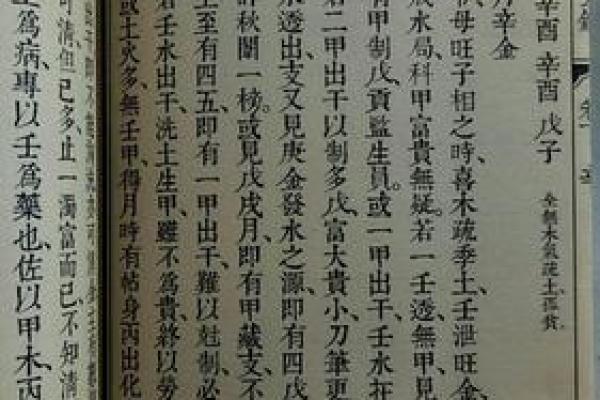 辛酉　辛酉　戊子
全賴木氣疏土區貧。
月辛金
秋母旺子相之時、喜木疏季土、壬泄旺金、
成水局、科甲富貴無疑。若一壬透、無甲、見
有甲制戊、貢監生員。或一甲出干、壬水在
若二甲出干以制多戊、富大貴小、刀筆更
水透出、支又見庚金發水之源、即有四戊
許秋闈一榜。或見戊戌月、即有甲藏支、不
土至有四五、即有一甲出干、難以尅制、必
若壬水出干、洗土生甲、雖不爲貴、終以勞
或土火多、無壬甲、得月時有帖身丙出化
可清、但己多、止一濁富而已、不知清
爲病、專以壬爲藥也、佐以甲木、丙